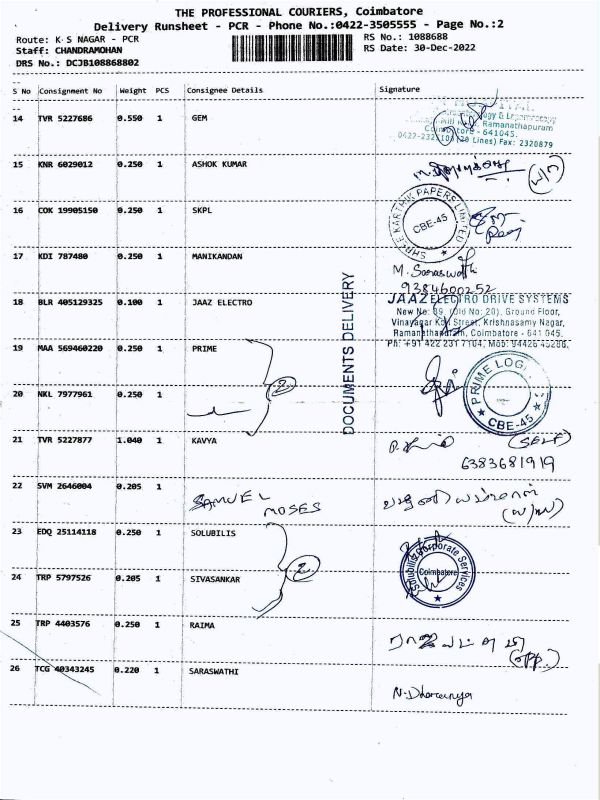 THE PROFESSIONAL COURIERS, Coimbatore
Delivery Runsheet - PCR - Phone No.:0422-3505555 - Page No.:2
Route: K S NAGAR - PCR
RS No.: 1088688
Staff: CHANDRAMOHAN
RS Date: 30-Dec-2022
DRS No.: DCJB108868802
S No Consignment No Weight PCS Consignee Details Signature
14 TVR 5227686 0.550 1 GEM
Ramanathapuram
641045.
Lines) Fax: 2320879
15 KNR 6029012 0.250 1 ASHOK KUMAR
16 COK 19905150 0.250 1 SKPL
SHREE KARTHIK PAPERS LIMITED
CBE-45
17 KDI 787480 0.250 1 MANIKANDAN
M. Saraswathi
9384600252
18 BLR 405129325 0.100 1 JAAZ ELECTRO
DOCUMENTS DELIVERY
JAAZ ELECTRO DRIVE SYSTEMS
New No: 89, (Old No: 20), Ground Floor,
Vinayagar Koil Street, Krishnasamy Nagar,
Ramanathapuram, Coimbatore - 641 045.
Ph: +91 422 231 7104, Mob: 94426 45286,
19 MAA 569460220 0.250 1 PRIME
2
PRIME LOGI
CBE-45
20 NKL 7977961 0.250 1
21 TVR 5227877 1.040 1 KAVYA
(SELF)
6383681919
22 SVM 2646004 0.205 1 SAMUEL
MOSES
23 EDQ 25114118 0.250 1 SOLUBILIS
2
Solubilis Corporate Services
Coimbatore
24 TRP 5797526 0.205 1 SIVASANKAR
25 TRP 4403576 0.250 1 RAIMA
26 TCG 40343245 0.220 1 SARASWATHI
N. Dharanya